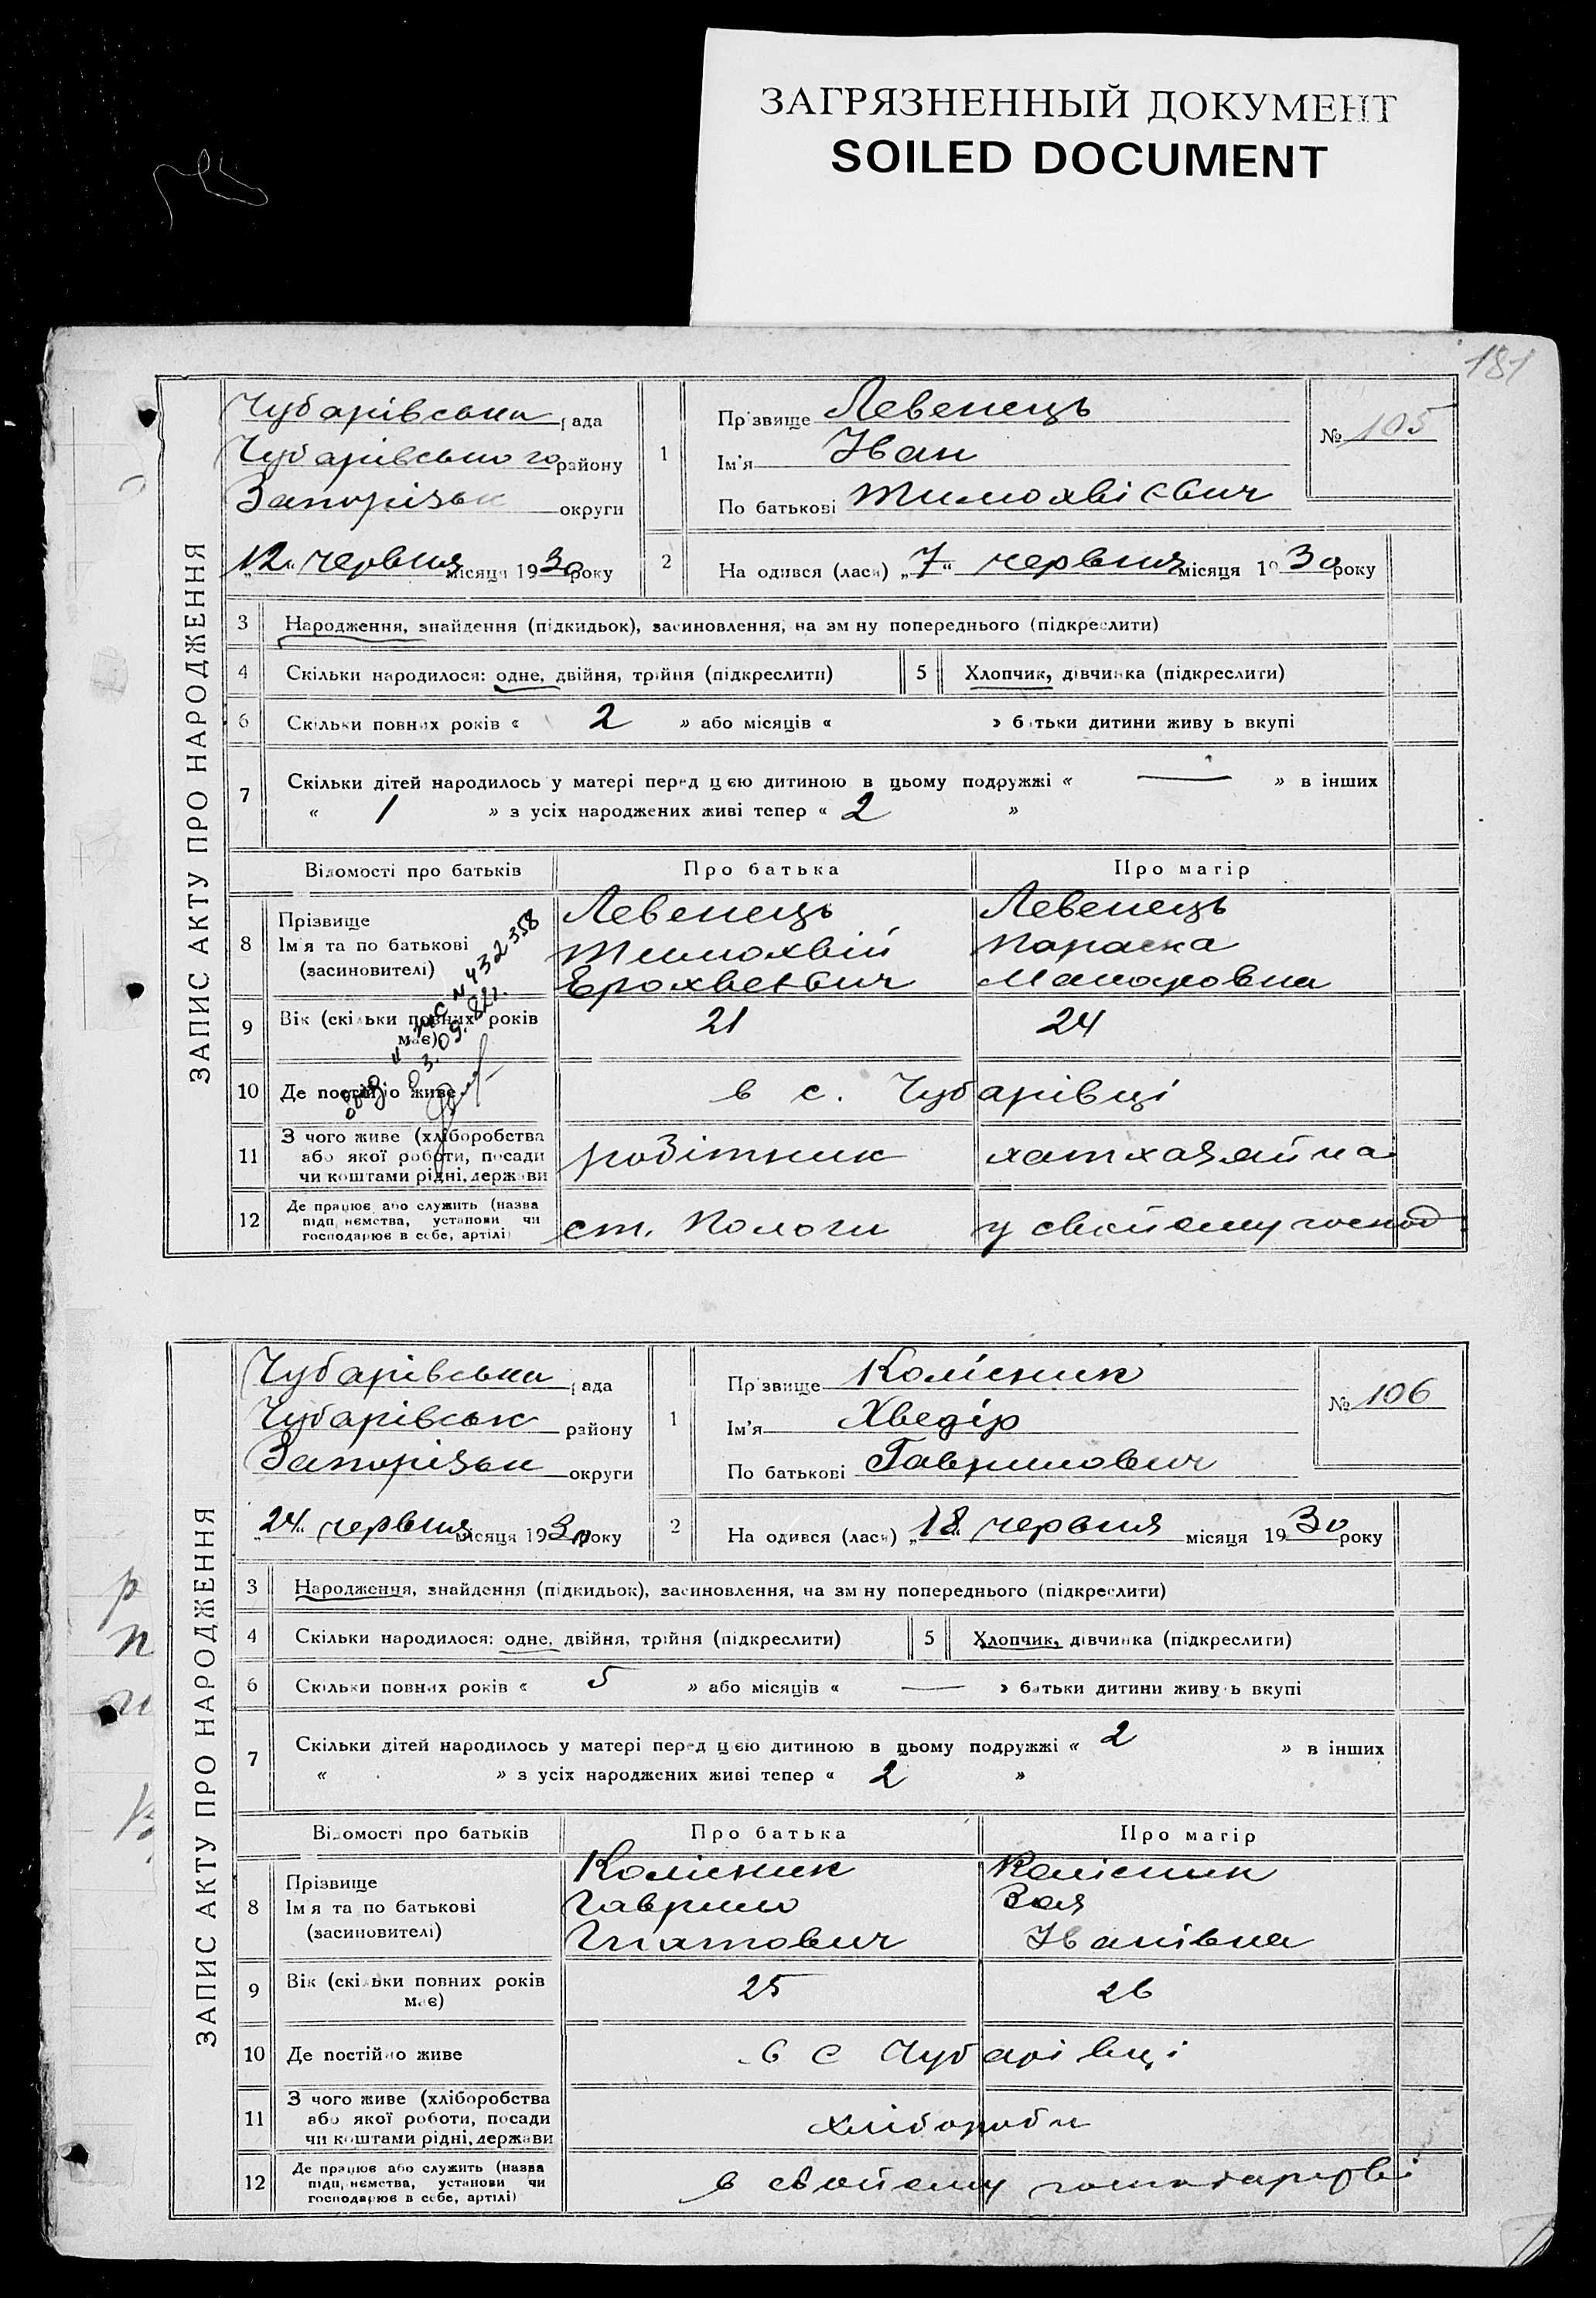 ЗАГРЯЗНЕННЫЙ ДОКУМЕНТ
SOILED DOCUMENT
181
ЗАПИС АКТУ ПРО НАРОДЖЕННЯ
Чубарівська рада
Чубарівського району
Запорізьк округи
„12“ червня місяця 1930 року
1
Прізвище Левенець
Ім'я Іван
По батькові Тимохвієвич
№ 105
2 На одився (лася) „7“ червня місяця 1930 року
3 Народження, знайдення (підкидьок), засиновлення, на зміну попереднього (підкреслити)
4 Скільки народилося: одне, двійня, трійня (підкреслити) 5 Хлопчик, дівчинка (підкреслити)
6 Скільки повних років « 2 » або місяців « » батьки дитини живуть вкупі
7 Скільки дітей народилось у матері перед цією дитиною в цьому подружжі « — » в інших
« 1 » з усіх народжених живі тепер « 2 »
Відомості про батьків Про батька Про матір
8 Прізвище Левенець Левенець
Ім'я та по батькові Тимохвій Параска
(засиновителі) Ерохвеєвич Макаровна
9 Вік (скільки повних років має) 21 24
10 Де постійно живе в с. Чубарівці
11 З чого живе (хліборобства або якої роботи, посади чи коштами рідні, держави робітник хатхазяйна
12 Де працює або служить (назва підприємства, установи чи господарює в себе, артілі) ст. Пологи у свойему господ
N 432358
03.09.
ЗАПИС АКТУ ПРО НАРОДЖЕННЯ
Чубарівська рада
Чубарівськ району
Запорізьк округи
„24“ червня місяця 1930 року
1
Прізвище Колісник
Ім'я Хведір
По батькові Гаврилович
№ 106
2 На одився (лася) „18“ червня місяця 1930 року
3 Народження, знайдення (підкидьок), засиновлення, на зміну попереднього (підкреслити)
4 Скільки народилося: одне, двійня, трійня (підкреслити) 5 Хлопчик, дівчинка (підкреслити)
6 Скільки повних років « 5 » або місяців « — » батьки дитини живуть вкупі
7 Скільки дітей народилось у матері перед цією дитиною в цьому подружжі « 2 » в інших
« » з усіх народжених живі тепер « 2 »
Відомості про батьків Про батька Про матір
8 Прізвище Колісник Колісник
Ім'я та по батькові Гаврило Зоя
(засиновителі) Гнатович Іванівна
9 Вік (скільки повних років має) 25 26
10 Де постійно живе в с Чубарівці
11 З чого живе (хліборобства або якої роботи, посади чи коштами рідні, держави хлібороби
12 Де працює або служить (назва підприємства, установи чи господарює в себе, артілі) в свойему